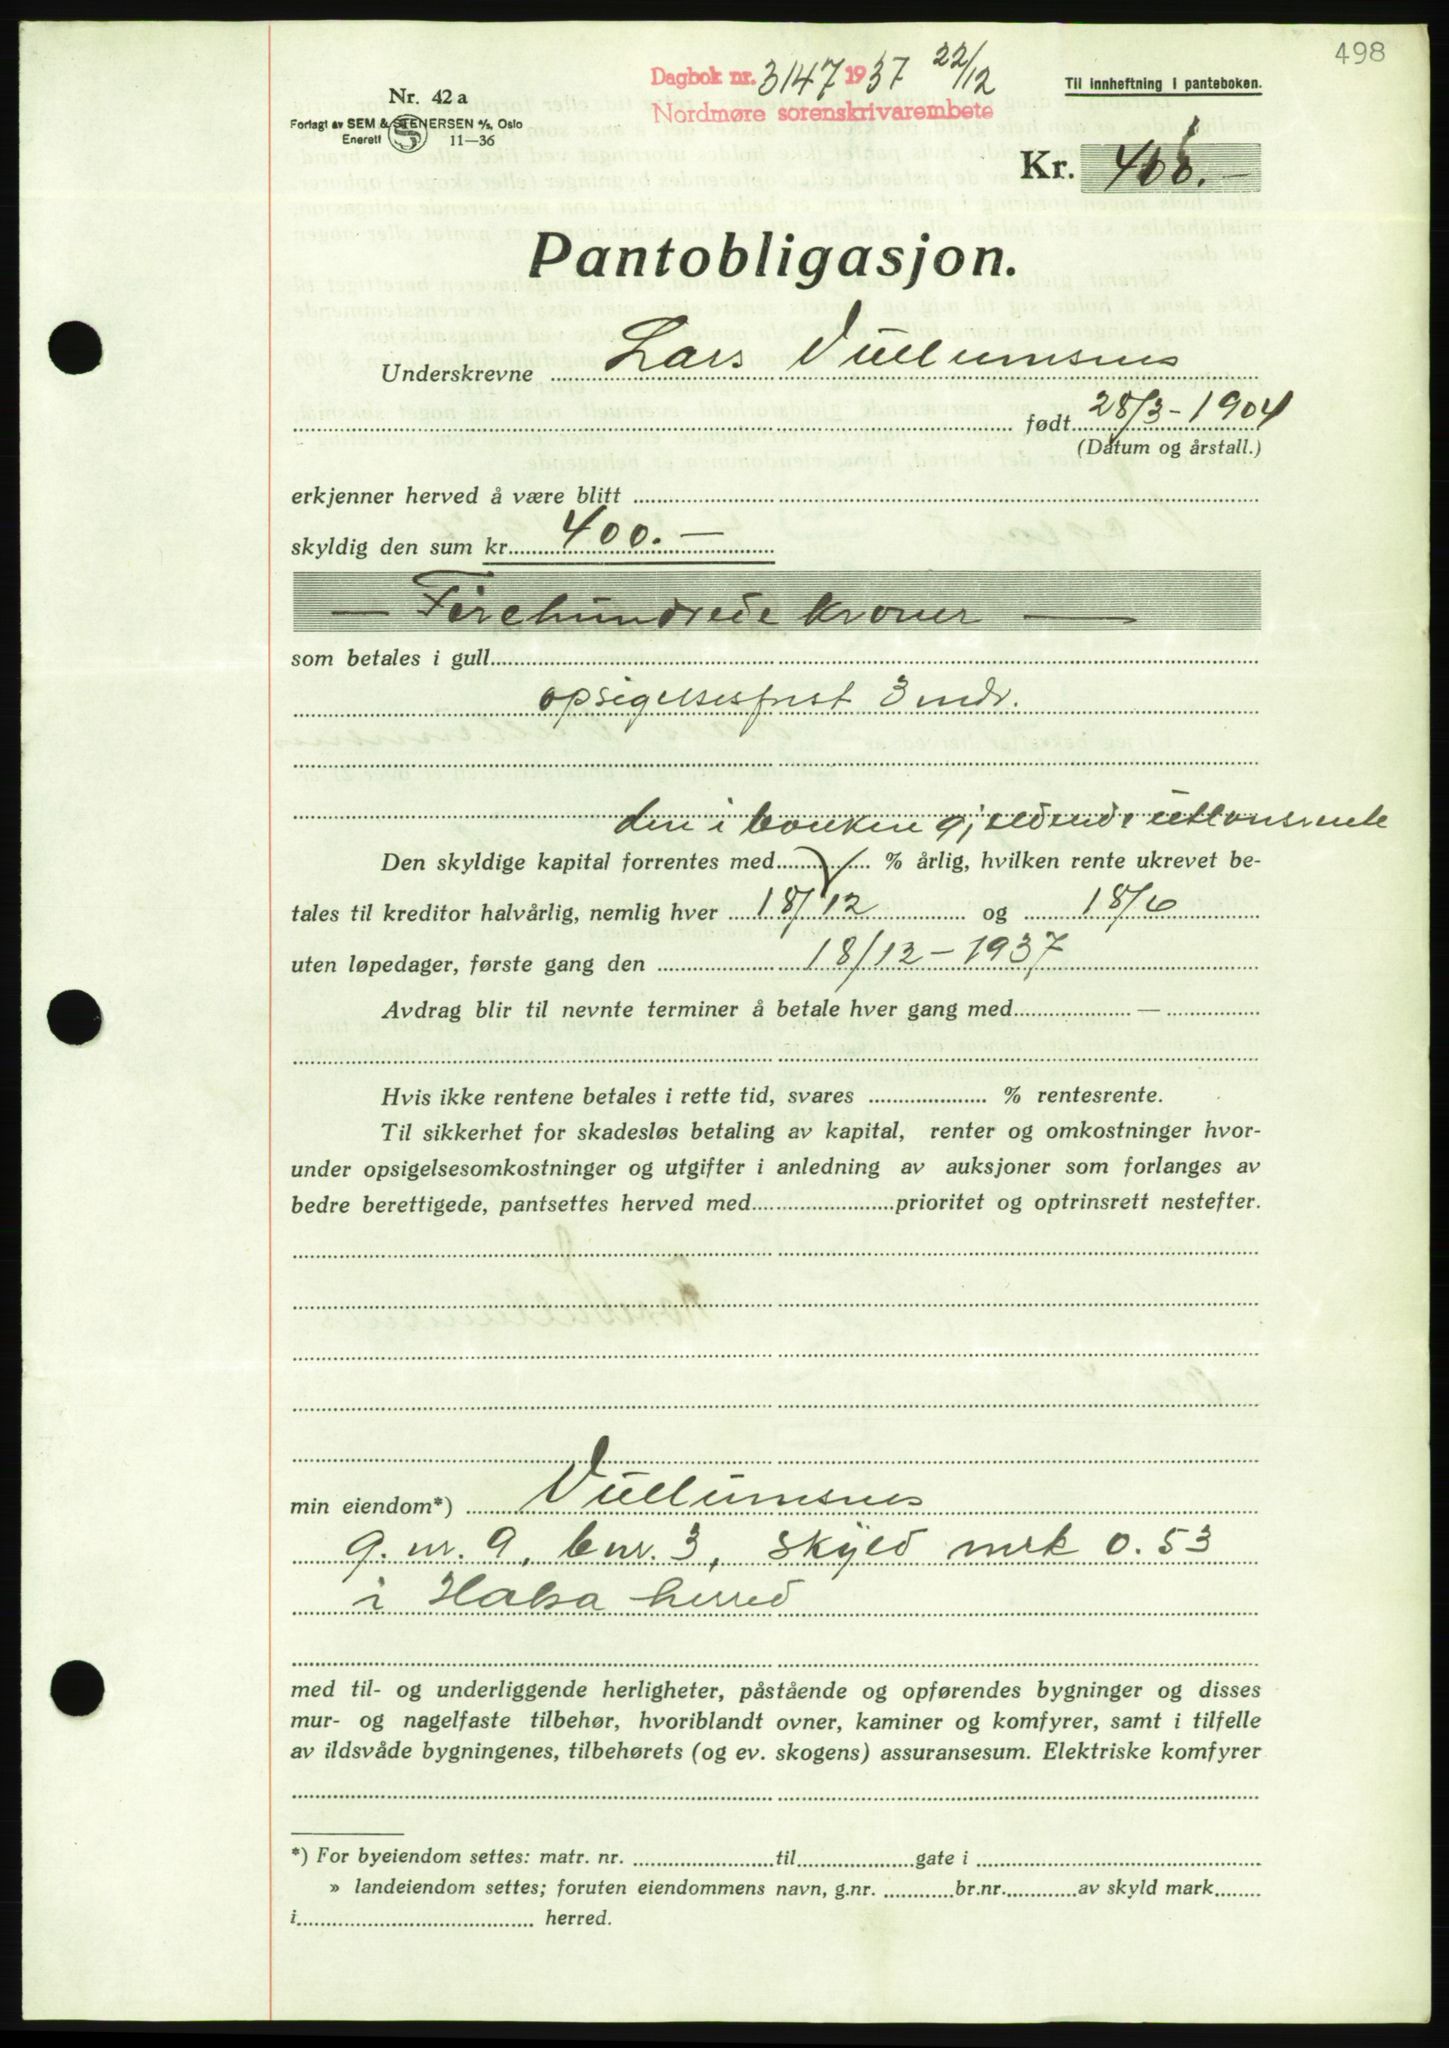 498
Dagbok nr. 3147 1937 22/12
Nordmøre sorenskrivarembete
Til innheftning i panteboken.
Nr. 42 a
Forlagt av SEM & STENERSEN A/S, Oslo
Enerett 11—36
Kr. 400.—
Pantobligasjon.
Underskrevne Lars Vullumsnes
født 28/3-1904
(Datum og årstall.)
erkjenner herved å være blitt
skyldig den sum kr. 400.—
— Firehundrede kroner —
som betales i gull
opsigelsesfrist 3 mdr.
den i banken gjeldende utlånsrente
Den skyldige kapital forrentes med % årlig, hvilken rente ukrevet be-
tales til kreditor halvårlig, nemlig hver 18/12 og 18/6
uten løpedager, første gang den 18/12-1937
Avdrag blir til nevnte terminer å betale hver gang med —
Hvis ikke rentene betales i rette tid, svares % rentesrente.
Til sikkerhet for skadesløs betaling av kapital, renter og omkostninger hvor-
under opsigelsesomkostninger og utgifter i anledning av auksjoner som forlanges av
bedre berettigede, pantsettes herved med prioritet og optrinsrett nestefter.
min eiendom*) Vullumsnes
g. nr. 9, bnr. 3, skyld mrk 0.53
i Halsa herred
med til- og underliggende herligheter, påstående og opførendes bygninger og disses
mur- og nagelfaste tilbehør, hvoriblandt ovner, kaminer og komfyrer, samt i tilfelle
av ildsvåde bygningenes, tilbehørets (og ev. skogens) assuransesum. Elektriske komfyrer
*) For byeiendom settes: matr. nr. til gate i
» landeiendom settes; foruten eiendommens navn, g.nr. br.nr. av skyld mark
i herred.